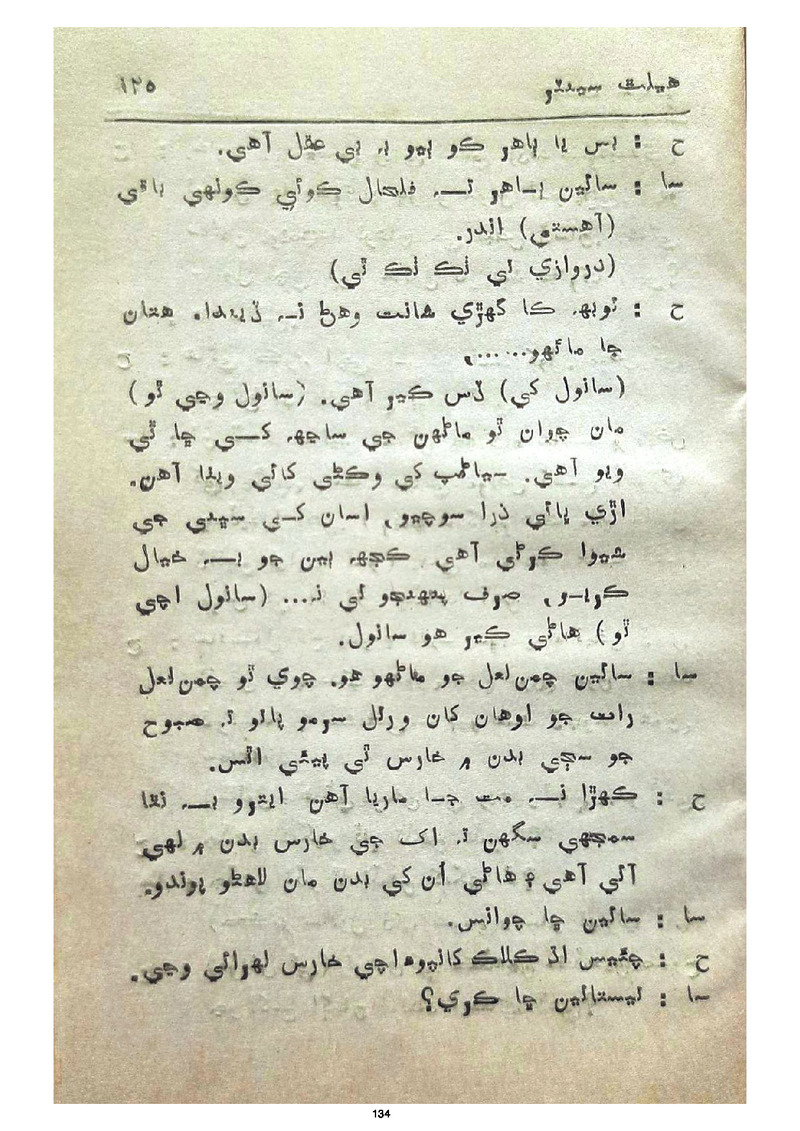 هيلٿ سينٽر ١٢٥
ح : بس يا ٻاهر ڪو ٻيو بہ بي عقل آهي.
سا : سائين ٻاهر تہ في الحال ڪوئي ڪونهي باقي
(آهستي) اندر.
(دروازي تي ٺڪ ٺڪ ٿي)
ح : توبهہ ڪا گهڙي شانت وهڻ نہ ڏيندا. هتان
جا ماڻهو......،
(سانول کي) ڏس ڪير آهي. (سانول وڃي ٿو)
مان چوان ٿو ماڻهن جي ساڃهہ کي ڇا ٿي
ويو آهي. سياڻپ کي وڪڻي کائي ويٺا آهن.
اڙي ڀائي ذرا سوچيو، اسان کي سڀني جي
شيوا ڪرڻي آهي ڪجهہ ٻين جو بہ خيال
ڪريو، صرف پنهنجو ئي نہ... (سانول اچي
ٿو) هاڻي ڪير هو سانول.
سا : سائين چمن لعل جو ماڻهو هو. چوي ٿو چمن لعل
رات جو اوهان کان ورتل سرمو پاتو تہ صبوح
جو سڄي بدن ۾ خارس ٿي پيئي اٿس.
ح : ڪهڙا نہ مت جا ماريا آهن ايترو بہ نٿا
سمجهي سگهن تہ اک جي خارس بدن ۾ لهي
آئي آهي ۽ هاڻي اُن کي بدن مان لاهڻو پوندو.
سا : سائين ڇا چوانس.
ح : چئينس اڌ ڪلاڪ کانپوءِ اچي خارس لهرائي وڃي.
سا : ليستائين ڇا ڪري؟
134